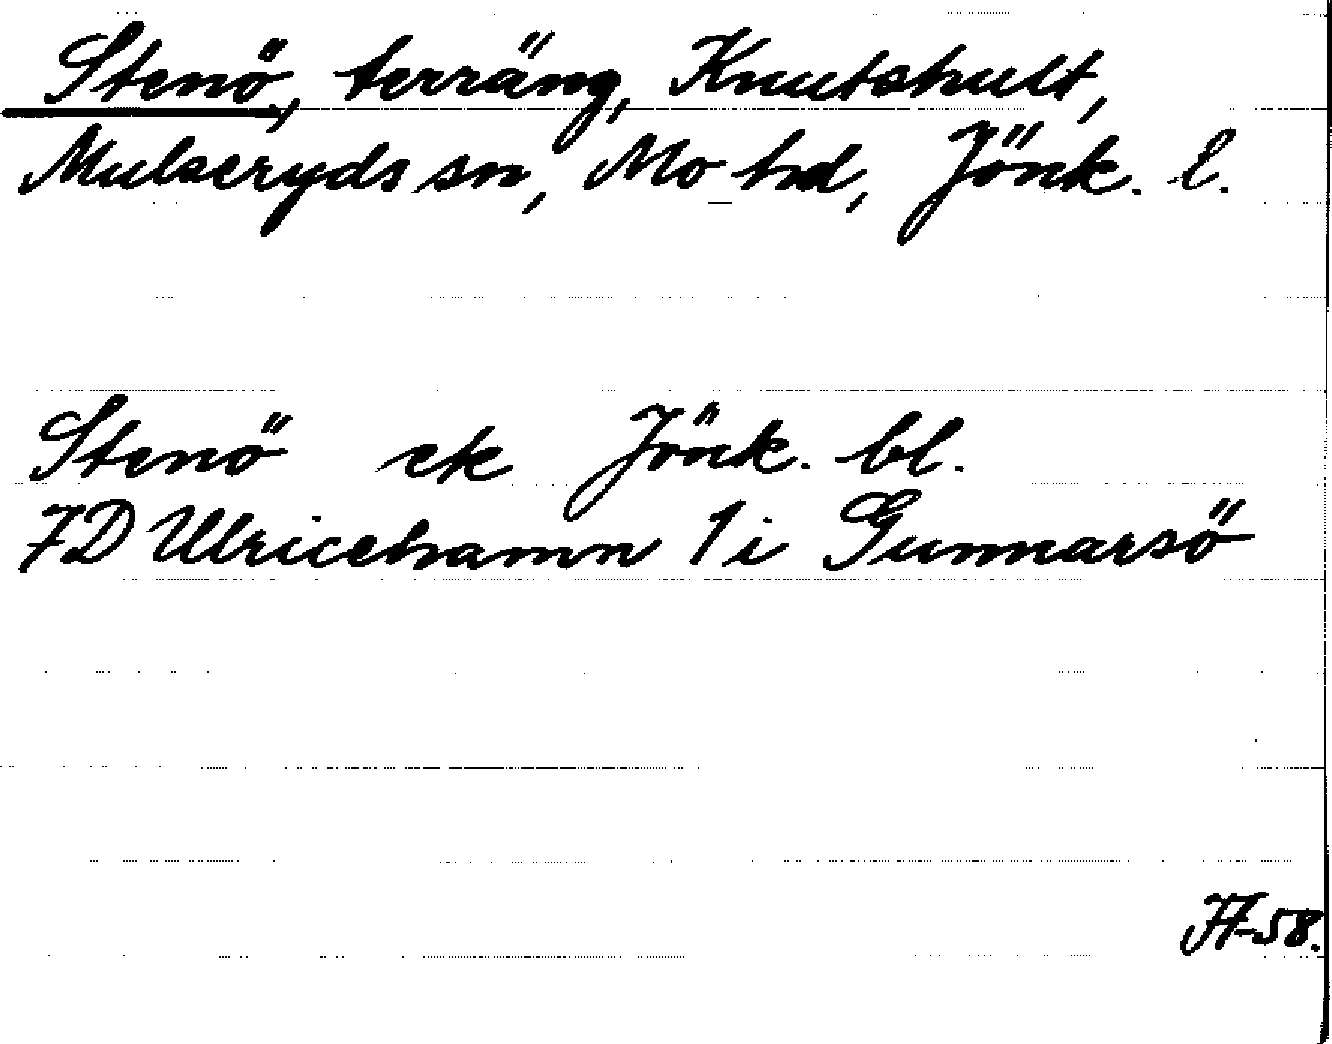 Stenö, terräng, Knutshult,
Mulseryds sn, Mo hd, Jönk. l.
Stenö ek Jönk. bl.
7D Ulricehamn 1 i Gunnarsö
JF-58.